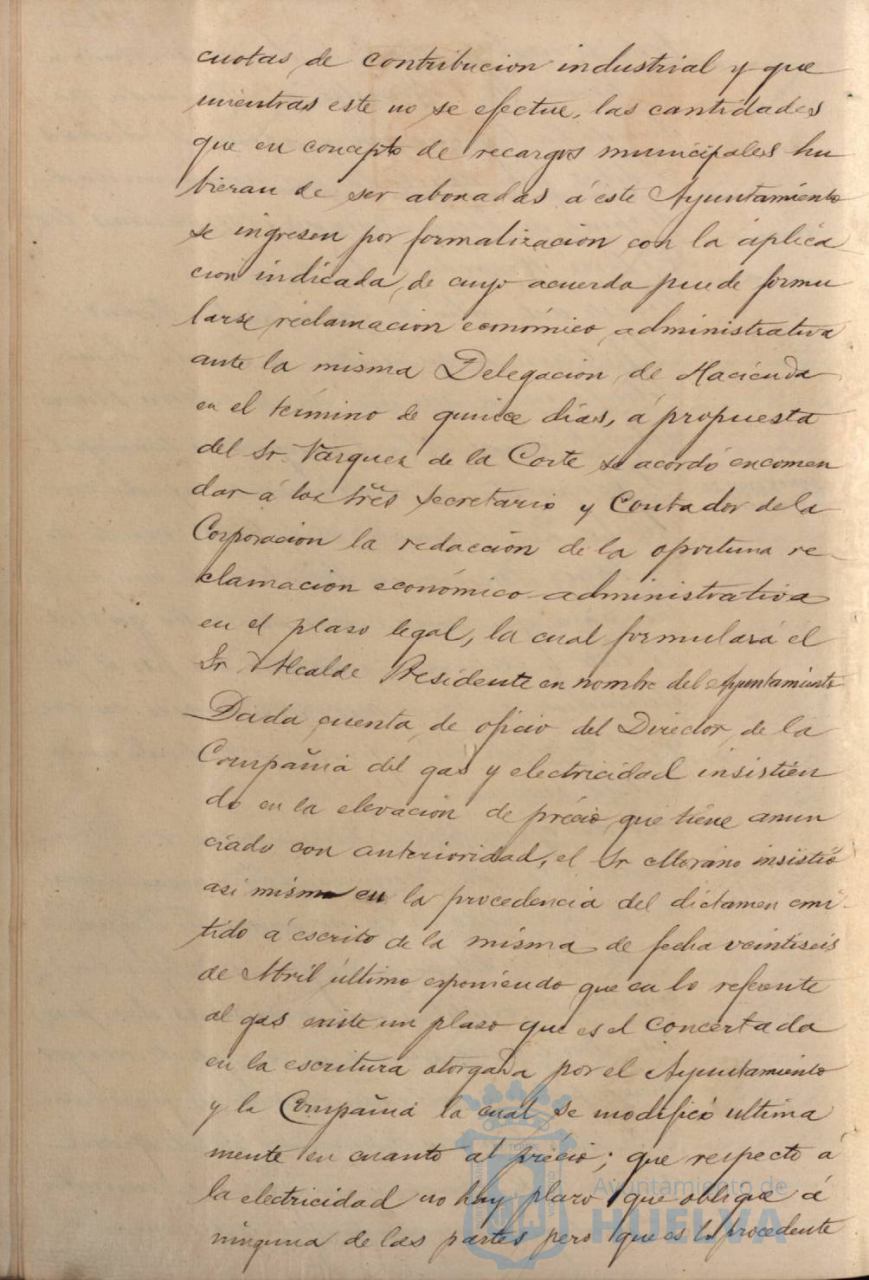 cuotas de contribucion industrial y que
mientras este no se efectue, las cantidades
que en concepto de recargos municipales hu
bieran de ser abonadas á este Ayuntamiento
se ingresen por formalizacion con la aplica
cion indicada, de cuyo acuerdo puede formu
larse reclamacion económico administrativa
ante la misma Delegacion de Hacienda
en el término de quince dias, á propuesta
del Sr. Vazquez de la Corte se acordó encomen
dar á los Sres Secretario y Contador de la
Corporacion la redacción de la oportuna re-
clamacion económico-administrativa
en el plaso legal, la cual formulará el
Sr Alcalde Presidente en nombre del Ayuntamiento
Dada cuenta de oficio del Director de la
Compañia del gas y electricidad insistien
do en la elevación de précio que tiene anun
ciado con anterioridad, el Sr Morano insistió
asi mismo en la procedencia del dictamen emi-
tido á escrito de la misma de fecha veintiseis
de Abril último exponiendo que en lo referente
al gas existe un plaso que es el concertada
en la escritura otorgada por el Ayuntamiento
y la Compañia la cual se modificó ultima
mente en cuanto al précio; que respecto á
la electricidad no hay plazo que obligue á
ninguna de las partes pero que es lo procedente
Ayuntamiento de
HUELVA